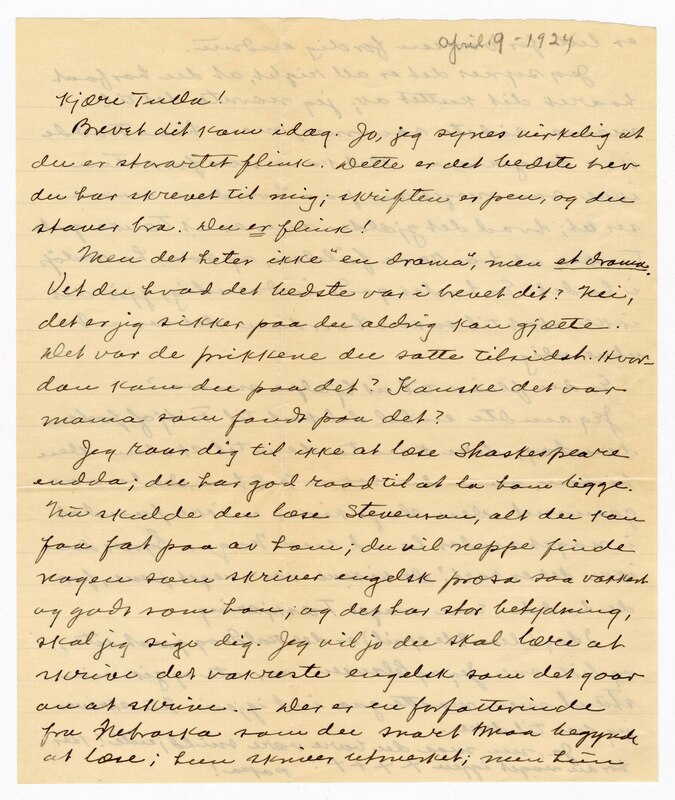 April 9 - 1924
Kjære Tulla!
Brevet dit kom idag. Jo, jeg synes virkelig at
du er storartet flink. Dette er det bedste brev
du har skrevet til mig; skriften er pen, og du
staver bra. Du er flink!
Men det heter ikke "en drama", men et drama.
Vet du hvad det bedste var i brevet dit? Nei,
det er jeg sikker paa du aldrig kan gjætte.
Det var de prikkene du satte tilsidst. Hvor-
dan kom du paa det? Kanske det var
mama som fandt paa det?
Jeg raar dig til ikke at læse Shaskespeare
endda; du har god raad til at la ham ligge.
Nu skulde du læse Stevenson, alt du kan
faa fat paa av ham; du vil neppe finde
nogen som skriver engelsk prosa saa vakkert
og godt som han, og det har stor betydning,
skal jeg sige dig. Jeg vil jo du skal lære at
skrive det vakreste engelsk som det gaar
an at skrive. - Der er en forfatterinde
fra Nebraska som du snart maa begynde
at læse; hun skriver utmerket; men hun